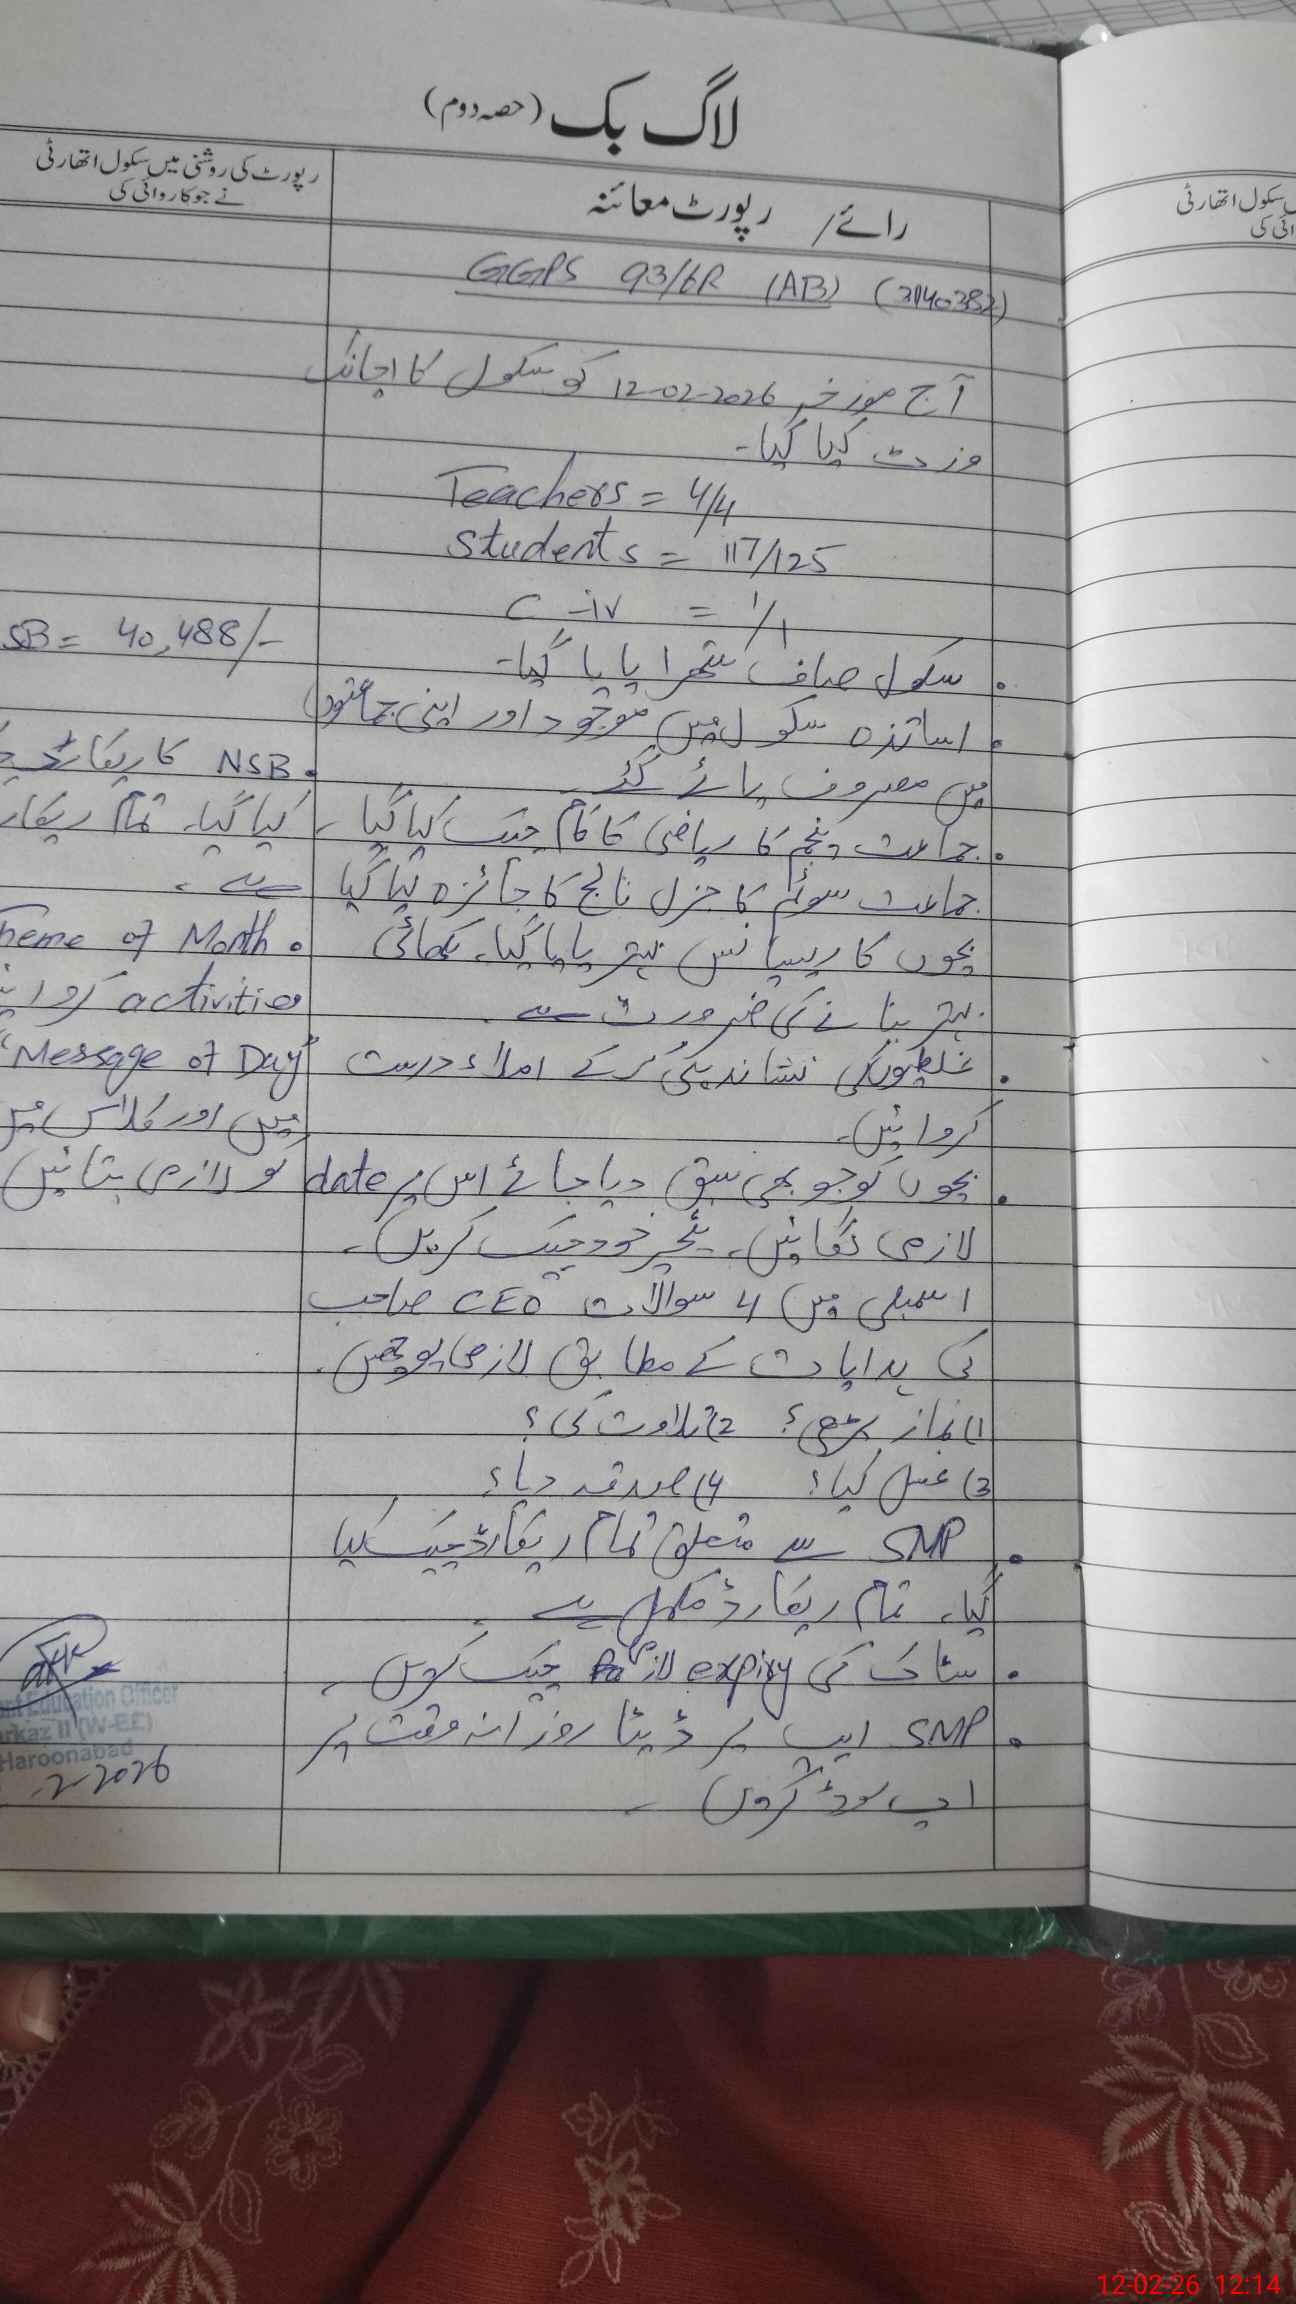 لاگ بک (حصہ دوم)
رائے / رپورٹ معائنہ
GGPS 93/6R (AB) (31140382)
آج مورخہ 12-02-2026 کو سکول کا اچانک
وزٹ کیا گیا۔
Teachers = 4/4
Students = 117/125
C-iv = 1/1
• سکول صاف ستھرا پایا گیا۔
• اساتذہ سکول میں موجود اور اپنی جماعتوں
میں مصروف پائے گئے۔
• جماعت پنجم کا ریاضی کا کام چیک کیا گیا۔
جماعت سوئم کا جنرل نالج کا جائزہ لیا گیا
بچوں کا ریسپانس بہتر پایا گیا۔ لکھائی
بہتر بنانے کی ضرورت ہے۔
• غلطیوں کی نشاندہی کر کے املاء درست
کروائیں۔
• بچوں کو جو بھی سبق دیا جائے اس پر date
لازمی لگائیں۔ ٹیچر خود چیک کریں۔
اسمبلی میں 4 سوالات CEO صاحب
کی ہدایات کے مطابق لازمی پوچھیں۔
1) نماز پڑھی؟ 2) تلاوت کی؟
3) غسل کیا؟ 4) صدقہ دیا؟
• SMP سے متعلق تمام ریکارڈ چیک کیا
گیا۔ تمام ریکارڈ مکمل ہے۔
• سٹاک کی expiry لازمی چیک کریں۔
• SMP ایپ پر ڈیٹا روزانہ وقت پر
اپ لوڈ کریں۔
رپورٹ کی روشنی میں سکول اتھارٹی
نے جو کاروائی کی
SB = 40,488/-
• NSB کا ریکارڈ
کیا گیا۔ تمام
ہے۔
• heme of Month
activities
"Message of Day"
میں اور کلاس میں
کو لازمی بتائیں
ant Education Officer
arkaz II (W-EE)
Haroonabad
-2-2026
سکول اتھارٹی
ائی کی
12-02-26 12:14